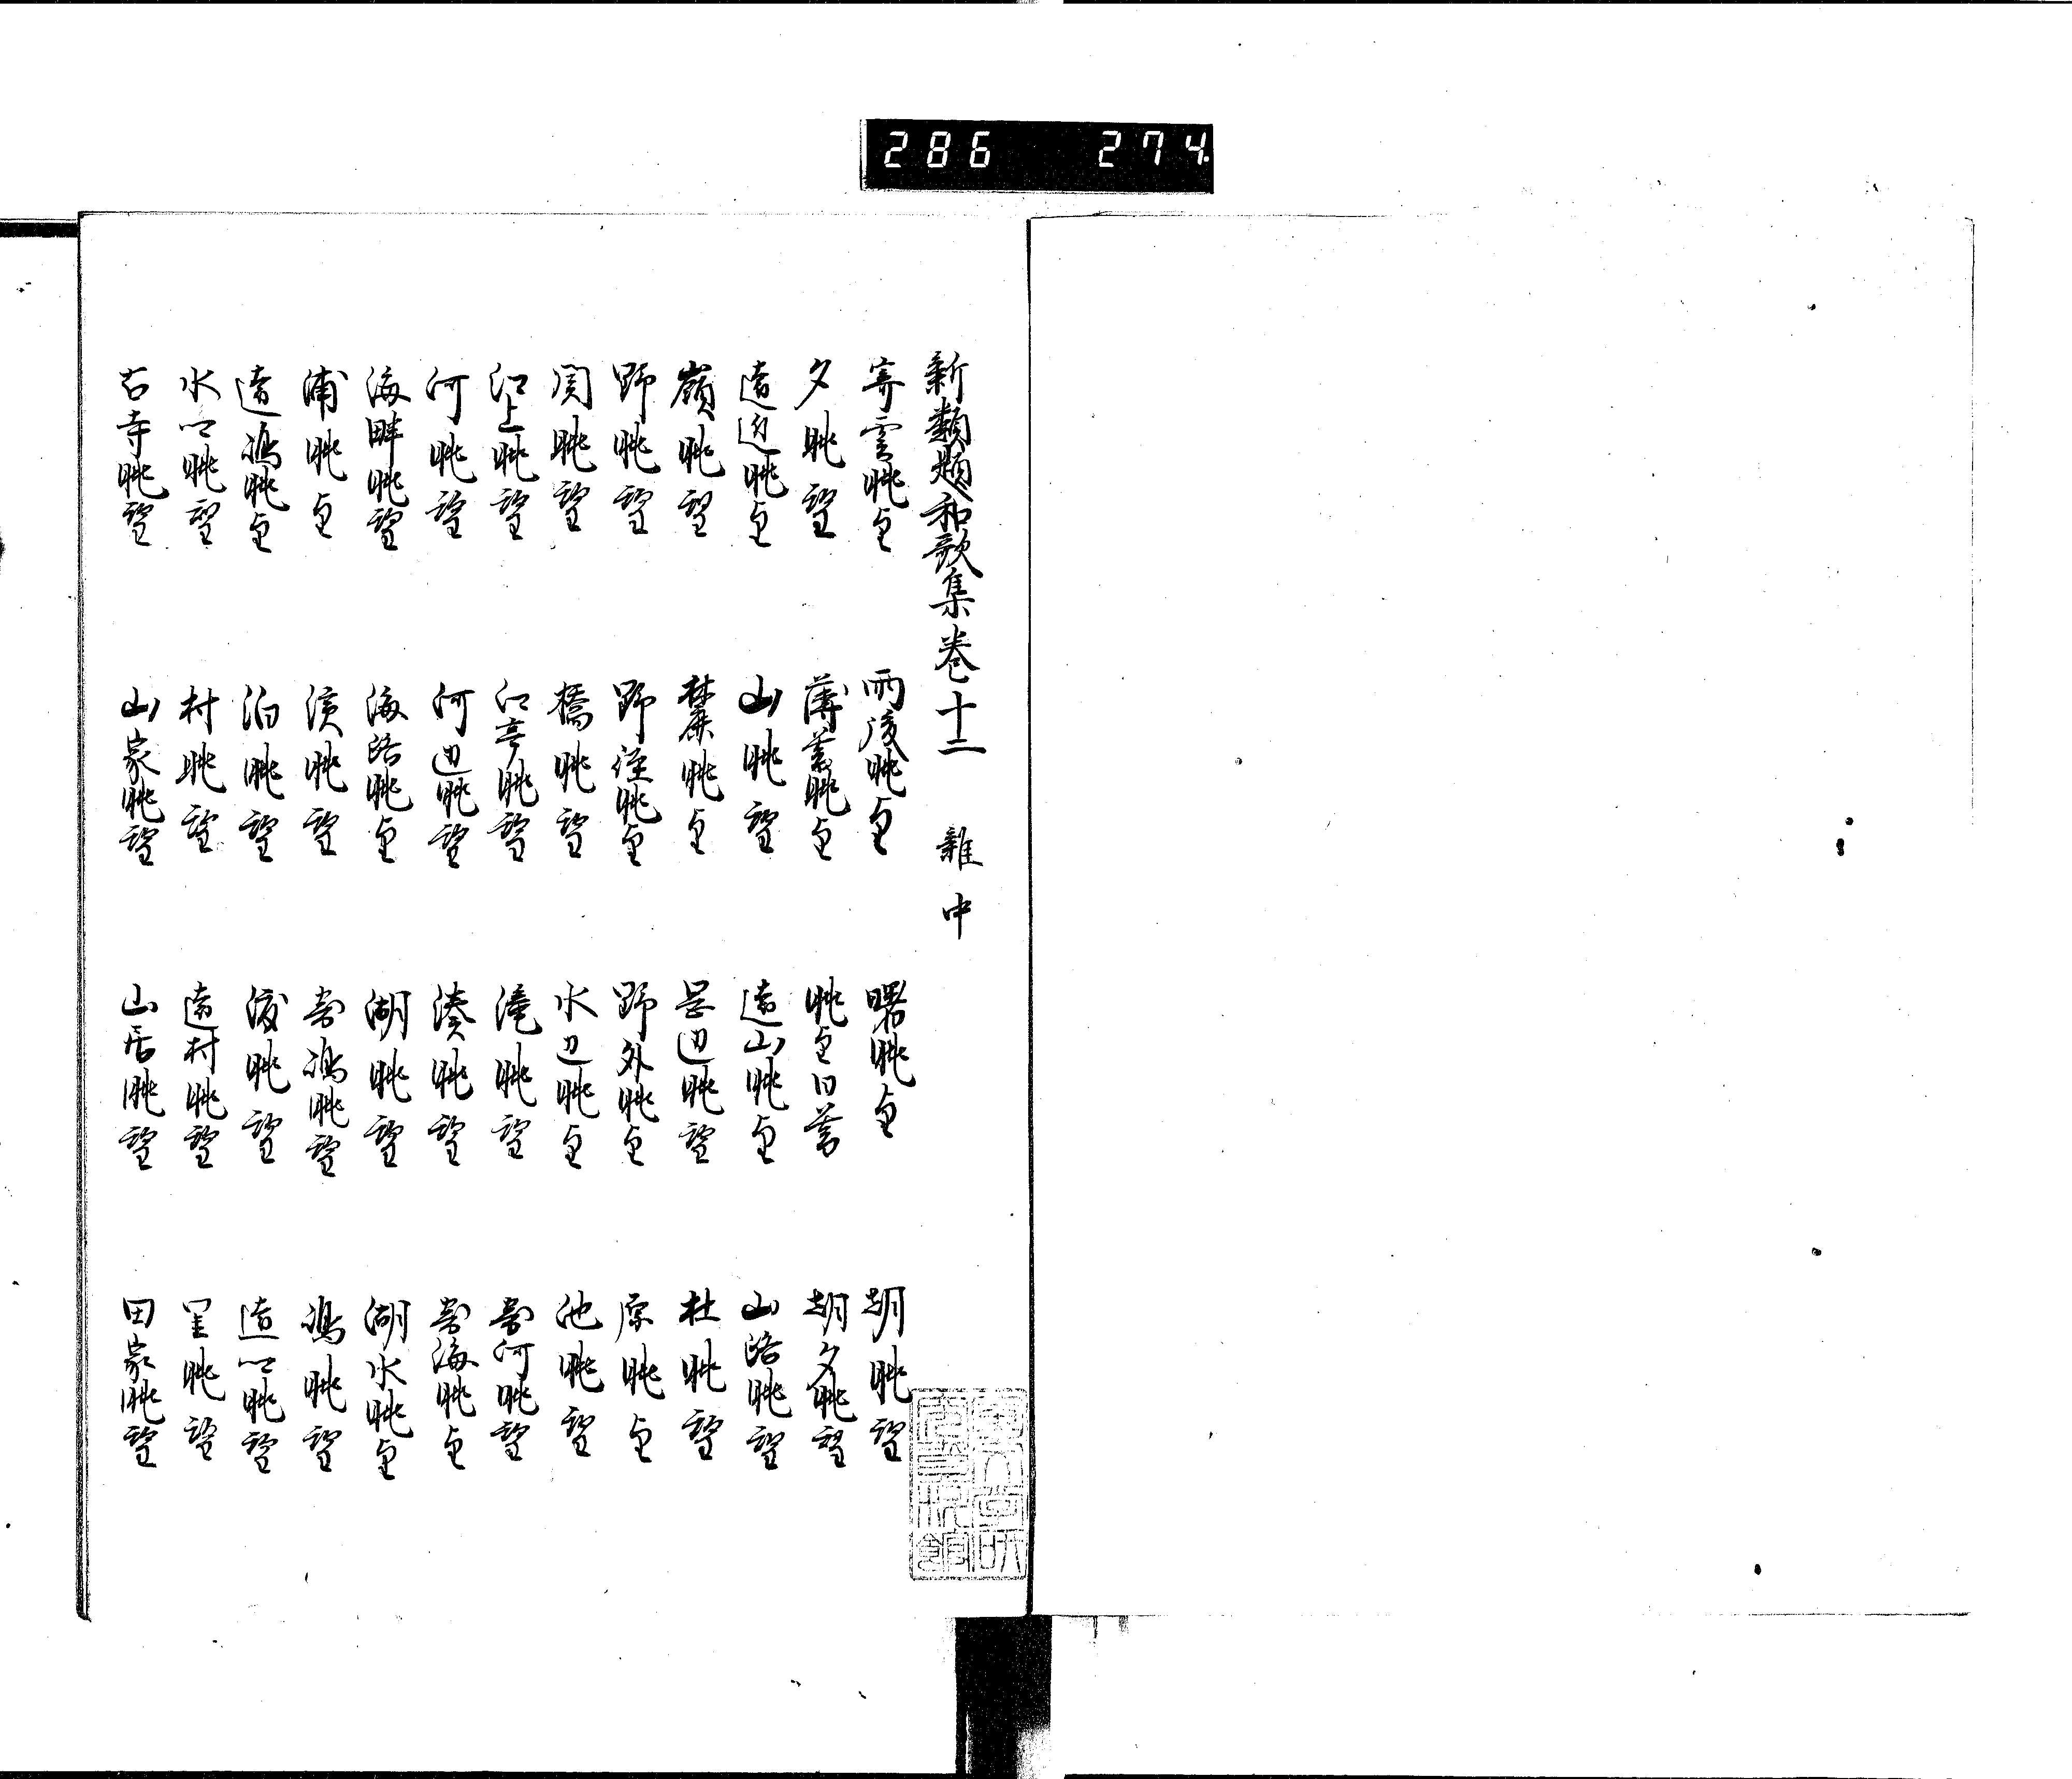 286 274
新類題和歌集巻十二 雑中
寄雲眺望 雨後眺望 曙眺望 朝眺望
夕眺望 薄暮眺望 眺望日暮 朝夕眺望
遠近眺望 山眺望 遠山眺望 山路眺望
嶺眺望 麓眺望 杜眺望
野眺望 野径眺望 野外眺望 原眺望
関眺望 橋眺望 水辺眺望 池眺望
江上眺望 江亭眺望 滝眺望 寄河眺望
河眺望 河辺眺望 湊眺望 寄海眺望
海畔眺望 海路眺望 湖眺望 湖水眺望
浦眺望 浜眺望 寄嶋眺望 嶋眺望
遠嶋眺望 泊眺望 渡眺望 遠眺望
水眺望 村眺望 遠村眺望 里眺望
古寺眺望 山家眺望 山居眺望 田家眺望